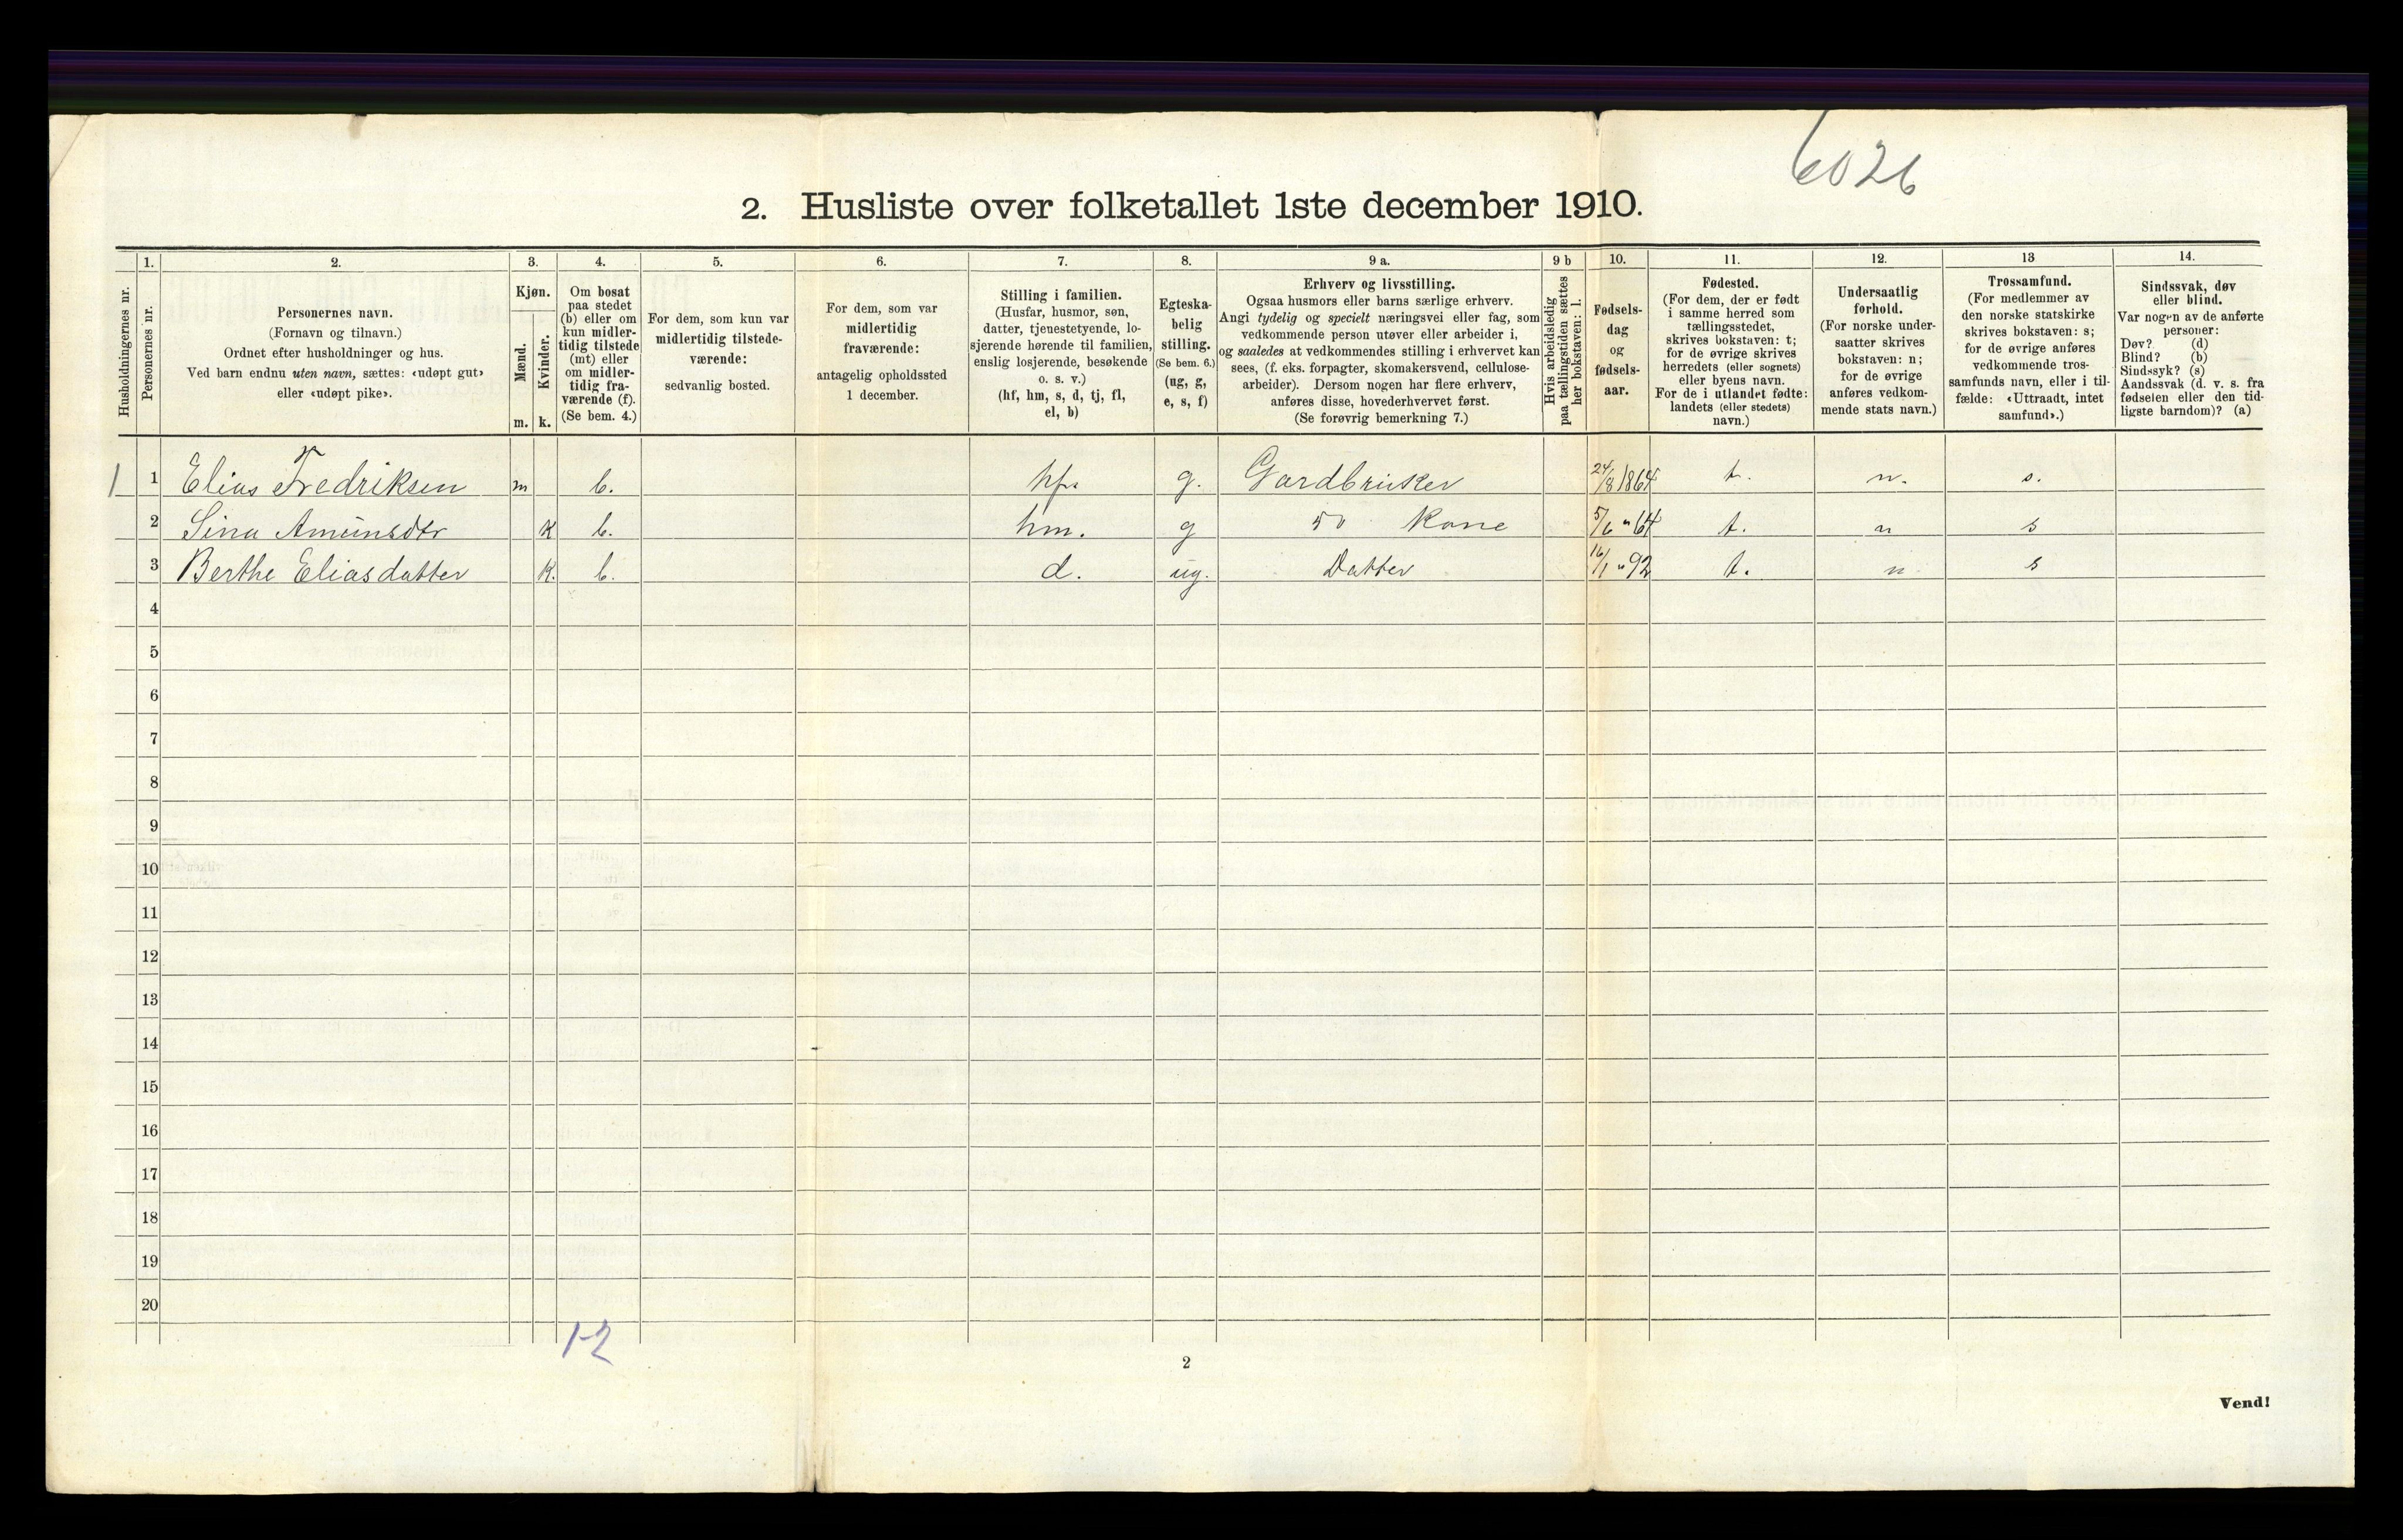 6026
2. Husliste over folketallet 1ste december 1910.
1. 2. 3. 4. 5. 6. 7. 8. 9 a. 9 b 10. 11. 12. 13 14.
Husholdningernes nr.
Personernes nr.
Personernes navn.
(Fornavn og tilnavn.)
Ordnet efter husholdninger og hus.
Ved barn endnu uten navn, sættes: «udøpt gut»
eller «udøpt pike».
Kjøn.
Mænd.
Kvinder.
m. k.
Om bosat
paa stedet
(b) eller om
kun midler-
tidig tilstede
(mt) eller
om midler-
tidig fra-
værende (f).
(Se bem. 4.)
For dem, som kun var
midlertidig tilstede-
værende:
sedvanlig bosted.
For dem, som var
midlertidig
fraværende:
antagelig opholdssted
1 december.
Stilling i familien.
(Husfar, husmor, søn,
datter, tjenestetyende, lo-
sjerende hørende til familien,
enslig losjerende, besøkende
o. s. v.)
(hf, hm, s, d, tj, fl,
el, b)
Egteska-
belig
stilling.
(Se bem. 6.)
(ug, g,
e, s, f)
Erhverv og livsstilling.
Ogsaa husmors eller barns særlige erhverv.
Angi tydelig og specielt næringsvei eller fag, som
vedkommende person utøver eller arbeider i,
og saaledes at vedkommendes stilling i erhvervet kan
sees, (f. eks. forpagter, skomakersvend, cellulose-
arbeider). Dersom nogen har flere erhverv,
anføres disse, hovederhvervet først.
(Se forøvrig bemerkning 7.)
Hvis arbeidsledig
paa tællingstiden sættes
her bokstaven: l.
Fødsels-
dag
og
fødsels-
aar.
Fødested.
(For dem, der er født
i samme herred som
tællingsstedet,
skrives bokstaven: t;
for de øvrige skrives
herredets (eller sognets)
eller byens navn.
For de i utlandet fødte:
landets (eller stedets)
navn.)
Undersaatlig
forhold.
(For norske under-
saatter skrives
bokstaven: n;
for de øvrige
anføres vedkom-
mende stats navn.)
Trossamfund.
(For medlemmer av
den norske statskirke
skrives bokstaven: s;
for de øvrige anføres
vedkommende tros-
samfunds navn, eller i til-
fælde: «Uttraadt, intet
samfund».)
Sindssvak, døv
eller blind.
Var nogen av de anførte
personer:
Døv? (d)
Blind? (b)
Sindssyk? (s)
Aandssvak (d. v. s. fra
fødselen eller den tid-
ligste barndom)? (a)
1 1 Elias Fredriksen m b. hf. g. Gardbruker 24/8 1864 t. n. s.
2 Sina Amunsdtr k b. hm. g Kone 5/6 " 64 t. n s
3 Berthe Eliasdatter k. b. d. ug. Datter 16/1 " 92 t. n s
4
5
6
7
8
9
10
11
12
13
14
15
16
17
18
19
20
1-2
2
Vend!